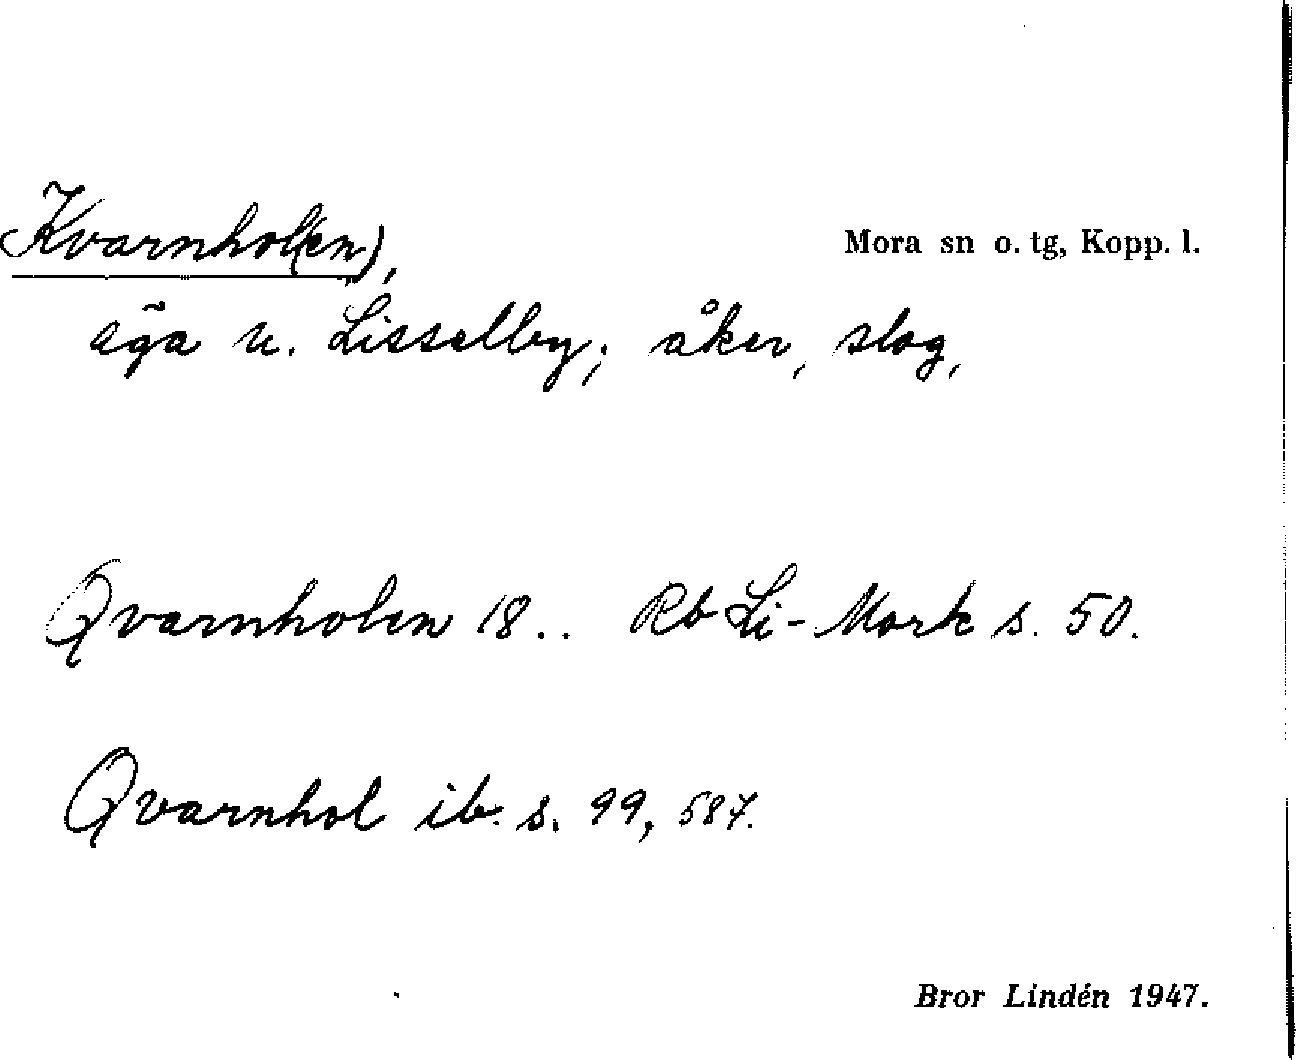 Kvarnhol(en),
Mora sn o. tg, Kopp. l.
äga u. Lisselby; åker, slog,
Qvarnholen 18.. Rb Li-Mork s. 50.
Qvarnhol ib. s. 99, 587.
Bror Lindén 1947.